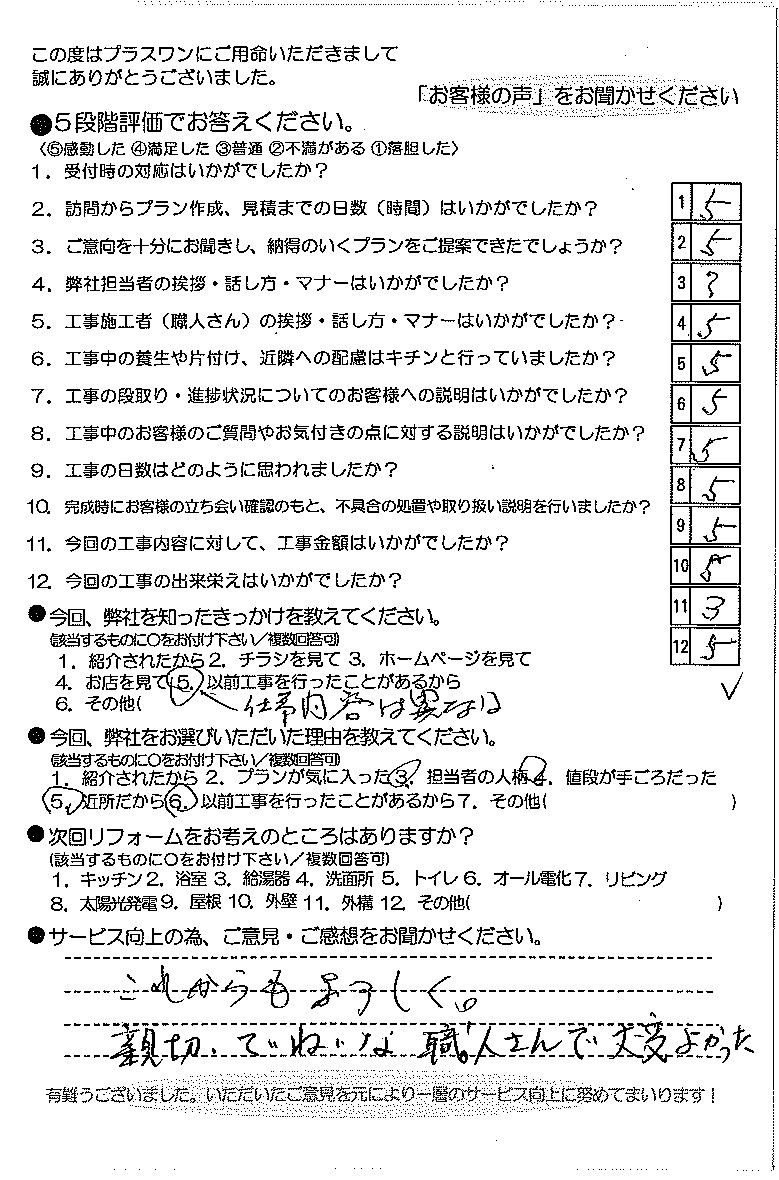 この度はプラスワンにご用命いただきまして
誠にありがとうございました。
「お客様の声」をお聞かせください
●5段階評価でお答えください。
〈⑤感動した ④満足した ③普通 ②不満がある ①落胆した〉
1. 受付時の対応はいかがでしたか?
2. 訪問からプラン作成、見積までの日数（時間）はいかがでしたか?
3. ご意向を十分にお聞きし、納得のいくプランをご提案できたでしょうか?
4. 弊社担当者の挨拶・話し方・マナーはいかがでしたか?
5. 工事施工者（職人さん）の挨拶・話し方・マナーはいかがでしたか?
6. 工事中の養生や片付け、近隣への配慮はキチンと行っていましたか?
7. 工事の段取り・進捗状況についてのお客様への説明はいかがでしたか?
8. 工事中のお客様のご質問やお気付きの点に対する説明はいかがでしたか?
9. 工事の日数はどのように思われましたか?
10. 完成時にお客様の立ち会い確認のもと、不具合の処置や取り扱い説明を行いましたか?
11. 今回の工事内容に対して、工事金額はいかがでしたか?
12. 今回の工事の出来栄えはいかがでしたか?
1 5
2 5
3 ?
4 5
5 5
6 5
7 5
8 5
9 5
10 5
11 3
12 5
●今回、弊社を知ったきっかけを教えてください。
(該当するものに〇をお付け下さい／複数回答可)
1. 紹介されたから 2. チラシを見て 3. ホームページを見て
4. お店を見て 5. 以前工事を行ったことがあるから
6. その他( 仕事内容は異なる
●今回、弊社をお選びいただいた理由を教えてください。
(該当するものに〇をお付け下さい／複数回答可)
1. 紹介されたから 2. プランが気に入った 3. 担当者の人柄 4. 値段が手ごろだった
5. 近所だから 6. 以前工事を行ったことがあるから 7. その他( )
●次回リフォームをお考えのところはありますか?
(該当するものに〇をお付け下さい／複数回答可)
1. キッチン 2. 浴室 3. 給湯器 4. 洗面所 5. トイレ 6. オール電化 7. リビング
8. 太陽光発電 9. 屋根 10. 外壁 11. 外構 12. その他( )
●サービス向上の為、ご意見・ご感想をお聞かせください。
これからもよろしく。
親切、ていねいな 職人さんで 大変よかった
有難うございました。いただいたご意見を元により一層のサービス向上に努めてまいります!